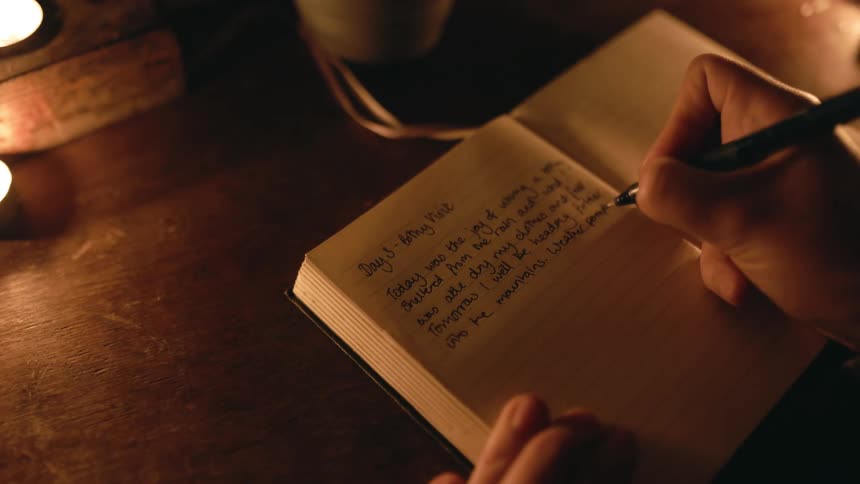 Day 3 - Bothy Visit
Today was the joy of using a
sheltered from the rain and wind. I
was able dry my clothes and feet
Tomorrow I will be heading further
into the mountains. Weather